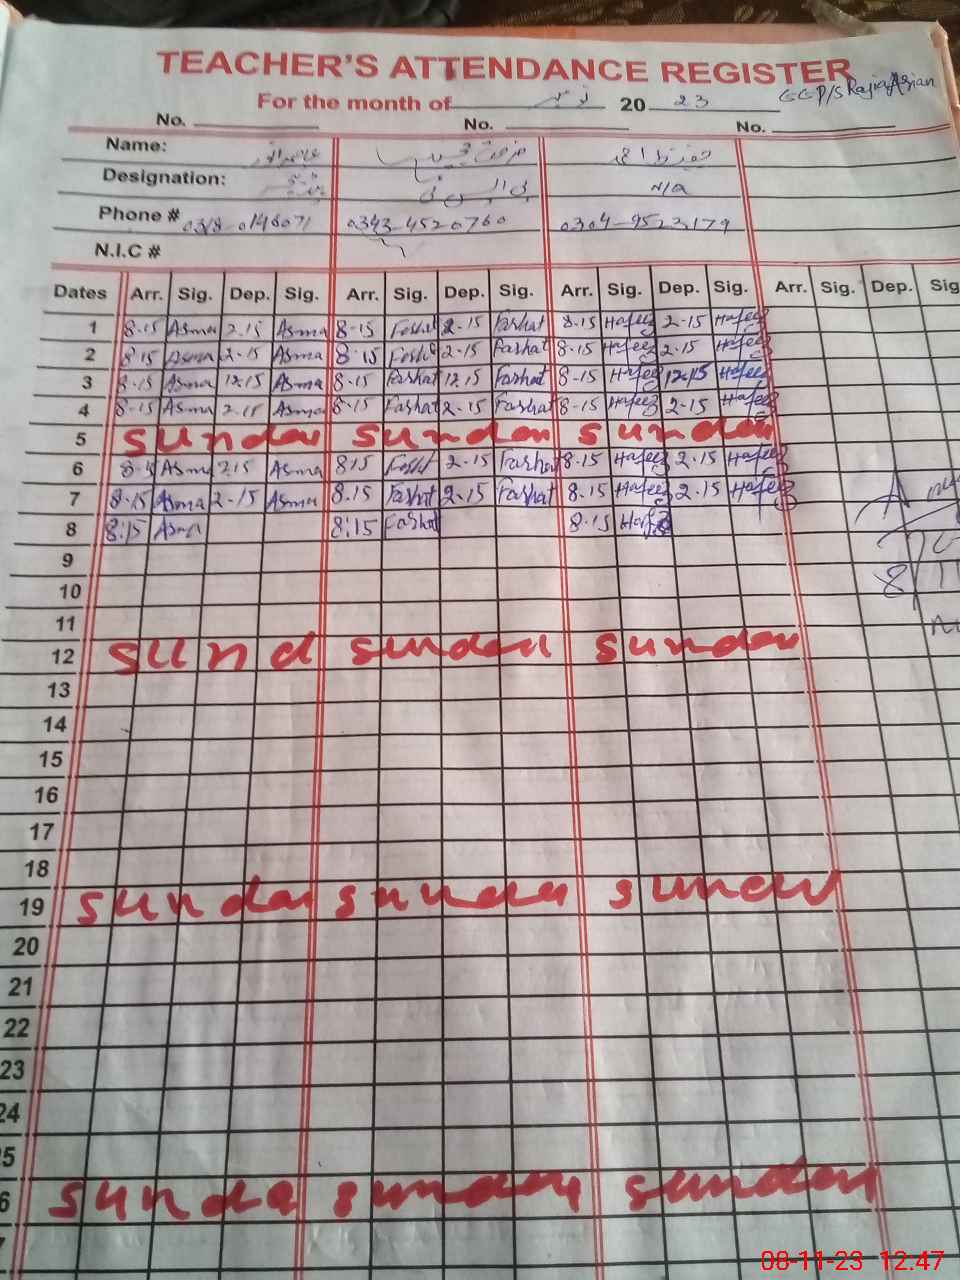 TEACHER'S ATTENDANCE REGISTER
For the month of نومبر 20 23 GGP/S Rajia Arian
No. No. No.
Name:
Designation: N/A
Phone # 0318-0146071 0343-4520760 0304-9523179
N.I.C #
Dates Arr. Sig. Dep. Sig. Arr. Sig. Dep. Sig. Arr. Sig. Dep. Sig. Arr. Sig. Dep. Sig
1 8-15 Asma 2.15 Asma 8-15 Farhat 2-15 Farhat 8-15 Hafeez 2-15 Hafeez
2 8-15 Asma 2-15 Asma 8-15 Farhat 2-15 Farhat 8-15 Hafeez 2-15 Hafeez
3 8-15 Asma 12.15 Asma 8-15 Farhat 12.15 Farhat 8-15 Hafeez 12.15 Hafeez
4 8-15 Asma 2-15 Asma 8-15 Farhat 2-15 Farhat 8-15 Hafeez 2-15 Hafeez
5 sunday sunday sunday
6 8-15 Asma 2.15 Asma 8.15 Farhat 2-15 Farhat 8-15 Hafeez 2-15 Hafeez
7 8-15 Asma 2-15 Asma 8.15 Farhat 2-15 Farhat 8-15 Hafeez 2-15 Hafeez
8 8:15 Asma 8:15 Farhat 8-15 Hafeez
9
10
11
12 sund sunday sunday
13
14
15
16
17
18
19 sunday sunday sunday
20
21
22
23
24
5
6 sunda sunday sunday
08-11-23 12:47